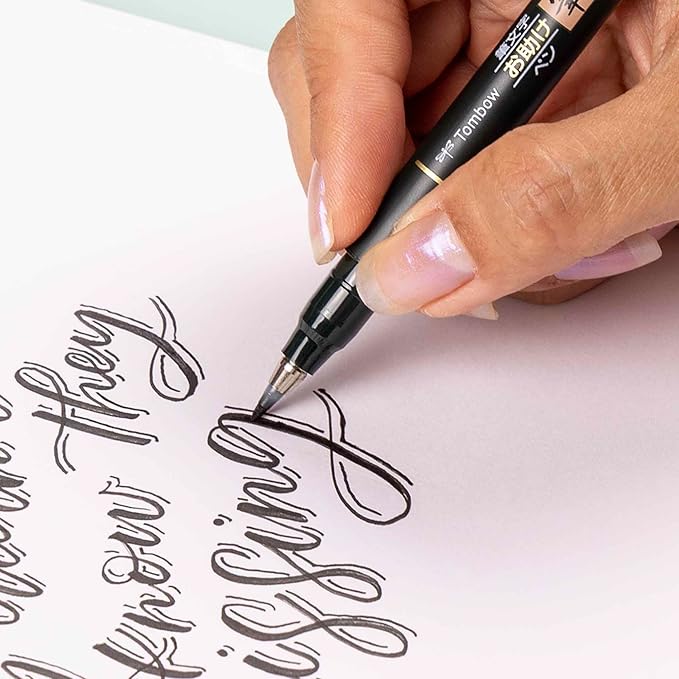 筆文字
お助け
ペン
Tombow
they
know
issing